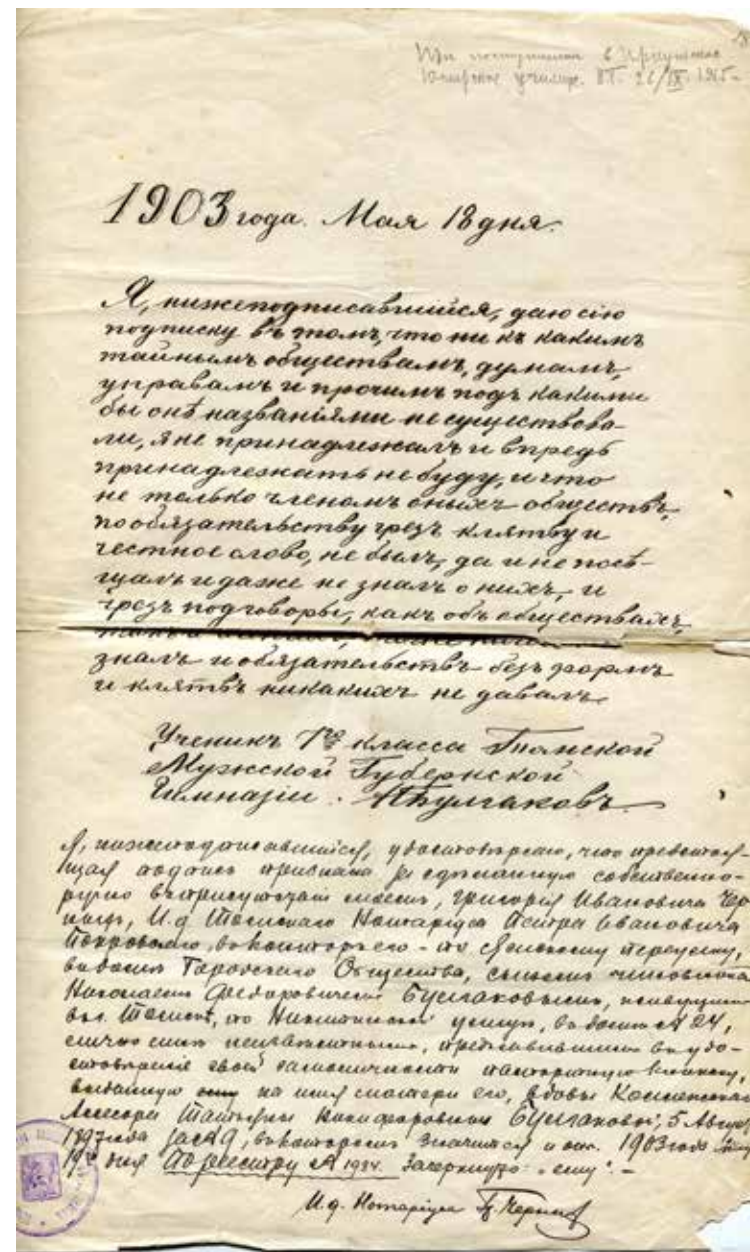 При поступлении в Иркутское
Юнкерское училище. 26/IX. 1915
1903 года. Мая 18 дня.
Я, нижеподписавшійся, даю сію
подписку въ томъ, что ни къ какимъ
тайнымъ обществамъ, думамъ,
управамъ и прочимъ подъ какими
бы онѣ названіями не существова-
ли, я не принадлежалъ и впредь
принадлежать не буду, и что
не только членомъ оныхъ обществъ,
по обязательству чрезъ клятву и
честное слово, не былъ, да и не посѣ-
щалъ и даже не зналъ о нихъ, и
чрезъ подговоры, какъ объ обществахъ,
зналъ и обязательствъ безъ формъ
и клятвъ никакихъ не давалъ.
Ученикъ 7го класса Томской
Мужской Губернской
Гимназіи. АБулгаковъ
Я, нижеподписавшійся, удостовѣряю, что предстоя-
щая подпись признана за сдѣланную собственно-
ручно въ присутствіи моемъ, Григорія Ивановича Чер-
И.д. Томскаго Нотаріуса Петра Ивановича
въ конторѣ его - по переулку,
въ домѣ Городского Общества, сыномъ чиновника
Николаемъ Федоровичемъ Булгаковымъ, живущимъ
въ г. Томскѣ, по Никитинской улицѣ, въ домѣ № 24,
лично мнѣ неизвѣстнымъ, представившимъ въ удо-
стовѣреніе своей самоличности паспортную книжку,
выданную ему на имя матери его, вдовы Коллежскаго
Ассесора Никифоровны Булгаковой, 5 Августа
1897 года за № 9, въ которомъ значится и онъ. 1903 года Мая
19 дня По реестру № 1984. Зачеркнуто: "ему". -
И.д. Нотаріуса Г. Черныхъ